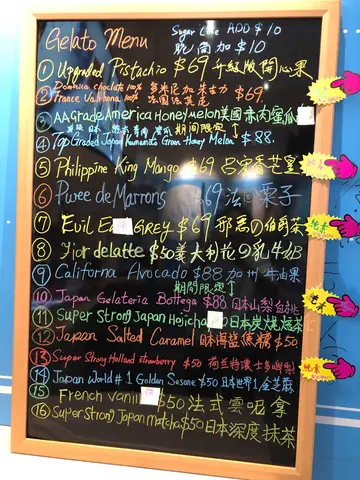 Gelato Menu
Sugar Cone ADD $10
脆筒加$10
① Upgraded Pistachio $69 升級版開心果
② Dominica choclate 100% 多米尼加朱古力
France Valrhona 100% 法国法芙尼 $69.
③ AA Grade America Honey Melon 美國赤肉蜜瓜
期间限定
④ Top Graded Japan Kumamoto Green Honey Melon $88.
⑤ Philippine King Mango $69 呂宋香芒皇
⑥ Puree de Marrons $69 法国栗子
⑦ Evil Earl Grey $69 邪惡の伯爵茶
⑧ Fior delatte $50 義大利花の乳牛奶
⑨ California Avocado $88 加州牛油果
期間限定
⑩ Japan Gelateria Bottega $88 日本山梨白桃
⑪ Super Strong Japan Hojicha 日本炭燒焙茶
⑫ Japan Salted Caramel 日本海盐焦糖 $50
⑬ Super Strong Holland strawberry $50 荷兰特濃士多啤梨
⑭ Japan World #1 Golden Sesame $50 日本世界1金芝麻
⑮ French Vanilla $50 法式雲呢拿
⑯ Super Strong Japan matcha $50 日本深度抹茶